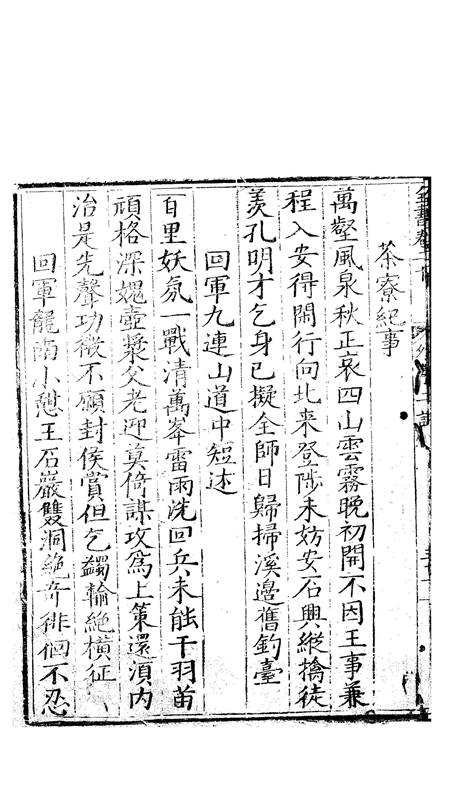 茶寮紀事
萬壑風泉秋正哀四山雲霧晚初開不因王事兼
程入安得閒行向北来登陟未妨安石興縱擒徒
羨孔明才乞身已擬全師日歸掃溪邊舊釣臺
回軍九連山道中短述
百里妖氛一戰清萬峯雷雨洗回兵未能干羽苗
頑格深媿壺漿父老迎莫倚謀攻爲上策還湏内
治是先聲功微不願封侯賞但乞蠲輸絶橫征
回軍龍南小憇王石巖雙洞絶奇徘徊不忍